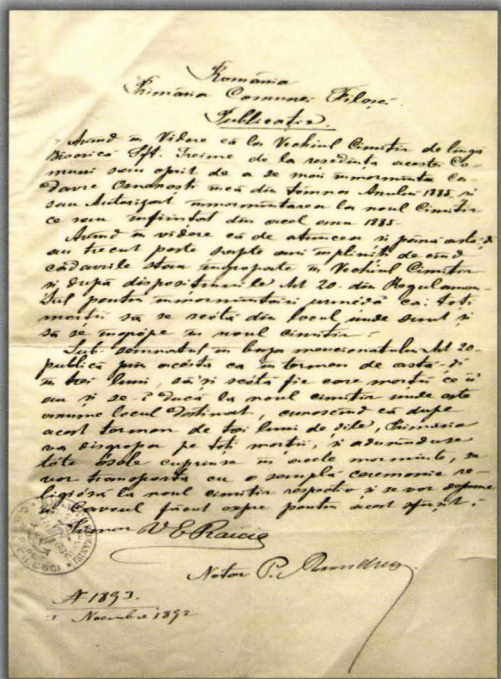 România
Primăria Comunei Filipesci.
Publicație.
Avend în Videre că la Vechiul Cimitir de lângă
Biserica Sft. Treime de la reședința acestei Co-
muni sau oprit de a se mai înmormânta Ca-
davre Omenesti încă din tómna Anului 1885 și
sau Autorizat înmormântarea la noul Cimitir
ce sau înființat din acel anu 1885.
Avend în videre că de atuncea și până astă-di
au trecut peste șapte ani împliniți de când
cadavrile stau îngropate în Vechiul Cimitir
și după dispositiunile Art 20 din Regulamen-
tul pentru înmormântări că: toți
morții să se scótă din locul unde sunt și
să se îngrópe în noul cimitir.
Sub semnatul în baza mencionatului Art 20
publică prin acésta ca în termen de astă-di
în trei luni, să-și scótă fie care morții ce-i
au și se-i ducă la noul cimitir unde este
anume locul destinat, cunoscând că după
acest termen de trei luni de dile, Primăria
va disgropa pe toți morții, și adunânduse
tóte ósele cuprinse în acele morminte, se
vor transporta cu o simplă ceremonie re-
ligiósă la noul cimitir respectiv și se vor depune
în Cavoul făcut expre pentru acest sfârșit.
Primar V E Raiciu
Notar P.
N 1893.
Noembrie 1892